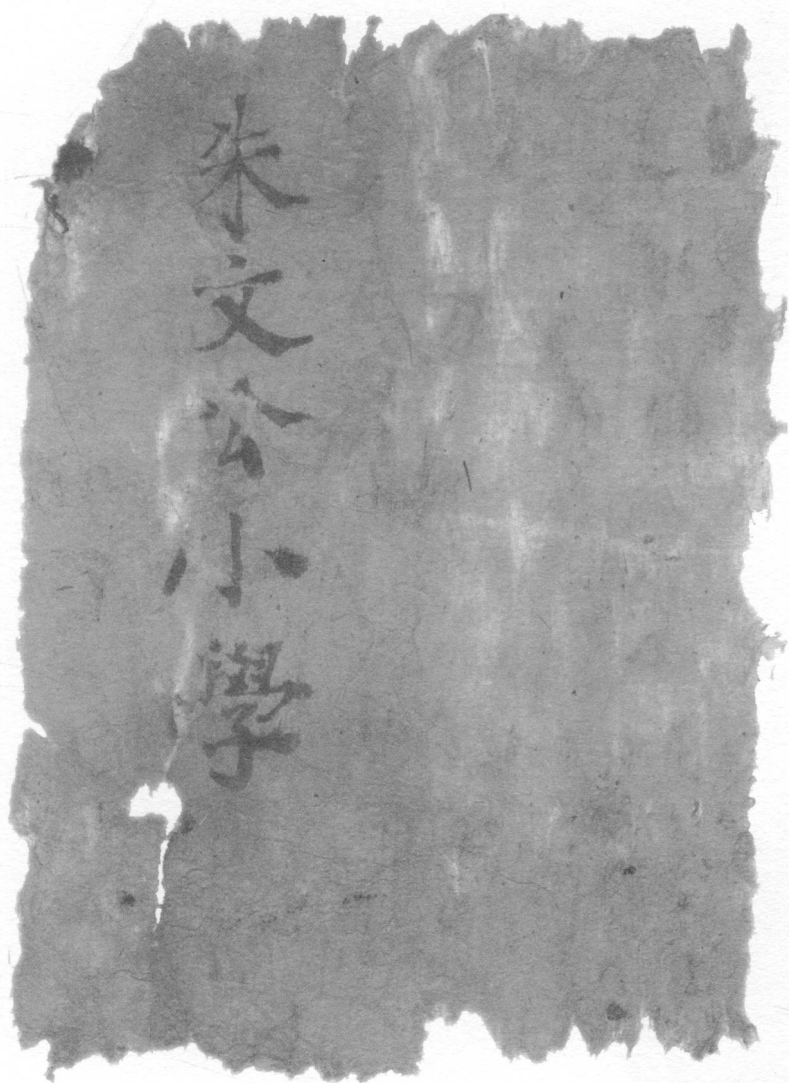 朱文公小學